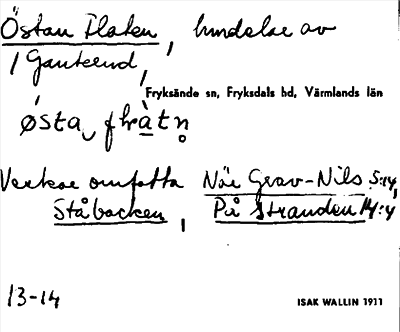 Östan Flaten, lundelse av
1 Ganteend,
Fryksände sn, Fryksdals hd, Värmlands län
østa fràtn̥
Verkar omfatta När Grav-Nils 5:14,
Ståbacken, På Stranden 14:4
13-14
ISAK WALLIN 1911